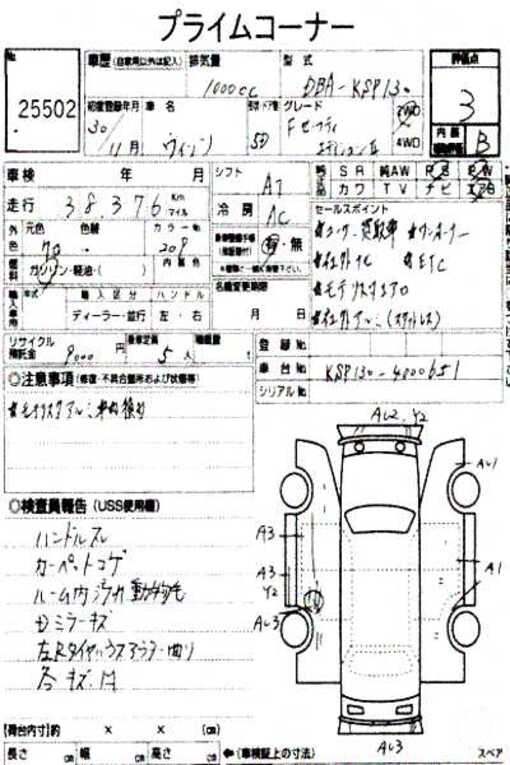 プライムコーナー
No
25502
車歴 (自家用以外は記入)
排気量
1000cc
型式
DBA-KSP130
評価点
3
初度登録年月
30/11月
車名
ヴィッツ
形状・ドア数
5D
グレード
Fセーフティ
エディションⅢ
2WD
4WD
内装
B
車検 年 月
シフト
AT
純正 SR 純AW PS PW
カワ TV ナビ エアB
走行 38,376 Km マイル
冷房
AC
セールスポイント
★ユーザー買取車 ★ワンオーナー
★社外ナビ ★ETC
★モデリスタエアロ
★社外アルミ(スタッドレス)
外色 元色 色替 カラーNo
209
燃料 ガソリン・軽油・( ) 内装色
有・無
名義変更期限
月 日
輸入車用 年式 輸入区分 ハンドル
ディーラー・並行 左・右
リサイクル預託金 9,000円
乗車定員 5人
積載量 t
登録No
車台No KSP130-4000651
シリアルNo
◎注意事項 (修復・不具合箇所および状態等)
★モデリスタアルミ車内積込
◎検査員報告 (USS使用欄)
ハンドルスレ
カーペットコゲ
ルーム内汚れ 動物毛
Dミラーキズ
左Rタイヤハウスアウター曲り
各キズ、凹
AL2、Y2
AL1
A3
A3
Y2
AL3
A1
AL3
【荷台内寸】約 × × (cm)
長さ cm 幅 cm 高さ cm
←(車検証上の寸法)
スペア